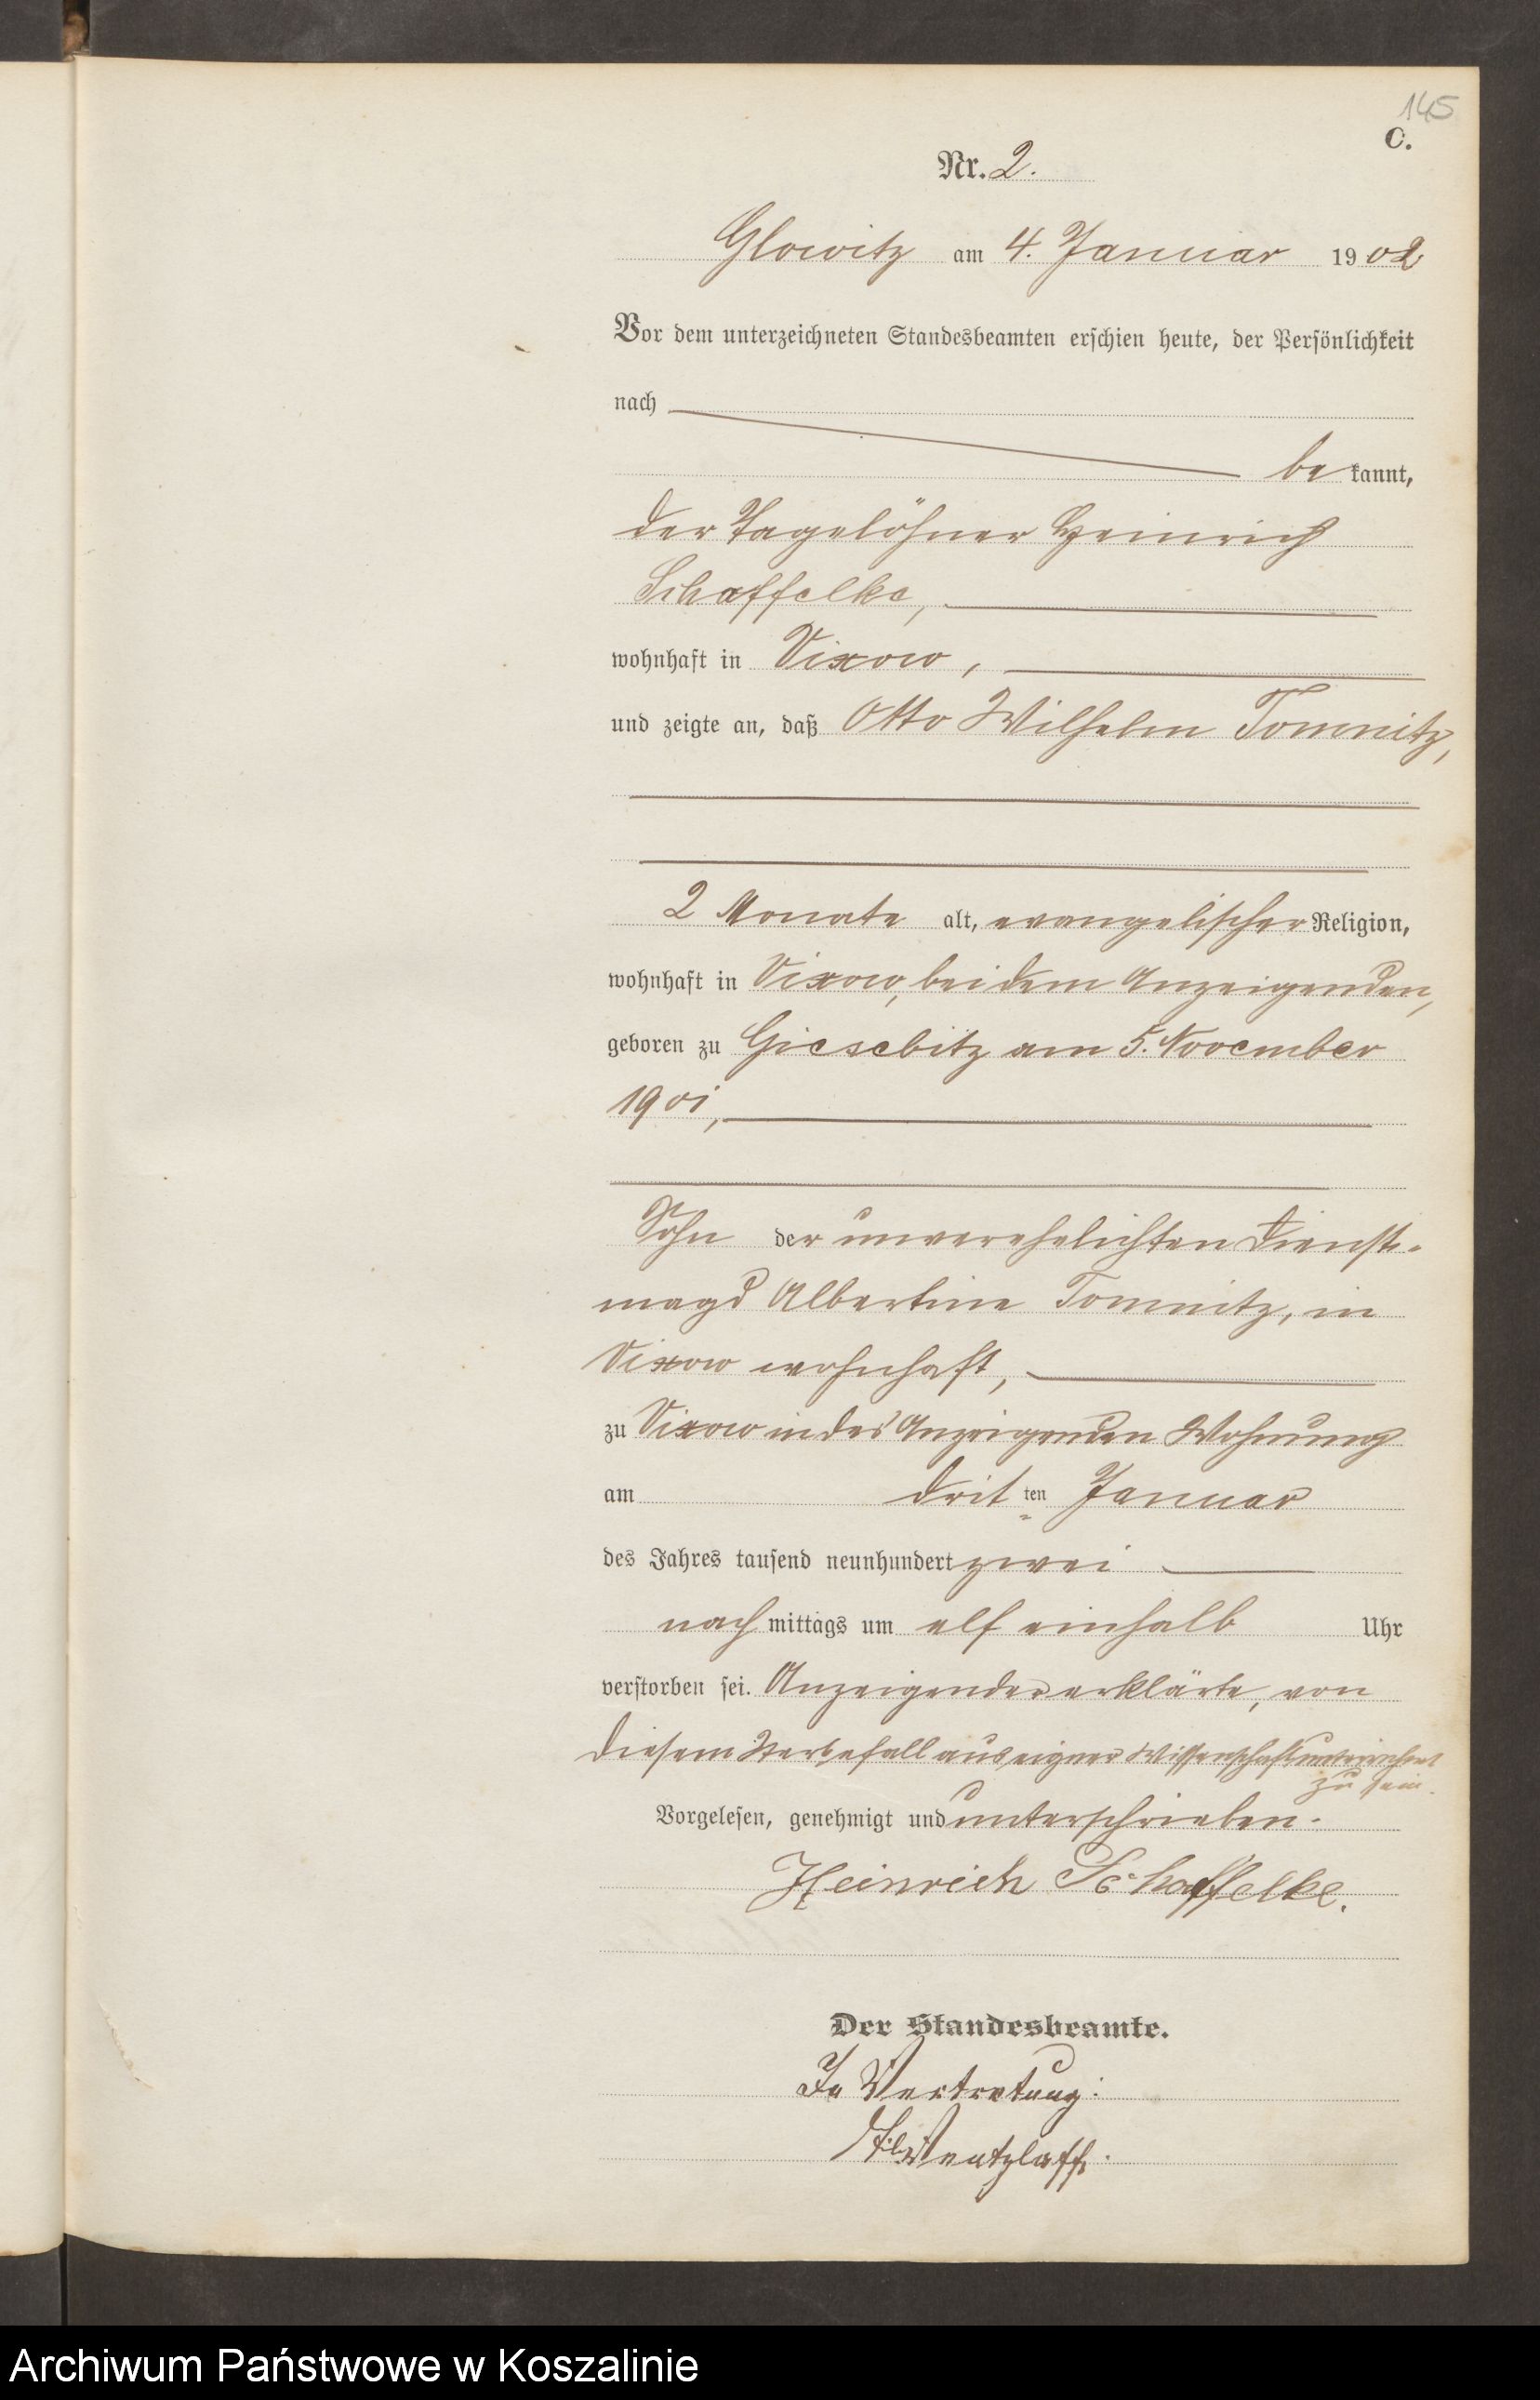 145
C.
Nr. 2.
Glowitz am 4. Januar 1902
Vor dem unterzeichneten Standesbeamten erschien heute, der Persönlichkeit
nach
be kannt,
der Tagelöhner Heinrich
Schaffelke,
wohnhaft in Vixow,
und zeigte an, daß Otto Wilhelm Tomnitz,
2 Monate alt, evangelischer Religion,
wohnhaft in Vixow, bei dem Anzeigenden,
geboren zu Giesebitz am 5. November
1901,
Sohn der unverehelichten Dienst-
magd Albertine Tomnitz, in
Vixow wohnhaft,
zu Vixow in des Anzeigenden Wohnung
am dritten Januar
des Jahres tausend neunhundert zwei
nachmittags um elf einhalb Uhr
verstorben sei. Anzeigender erklärte, von
diesem Sterbefall aus eigner Wissenschaft unterrichtet
zu sein.
Vorgelesen, genehmigt und unterschrieben.
Heinrich Schaffelke.
Der Standesbeamte.
In Vertretung:
Wentzlaff.
Archiwum Państwowe w Koszalinie